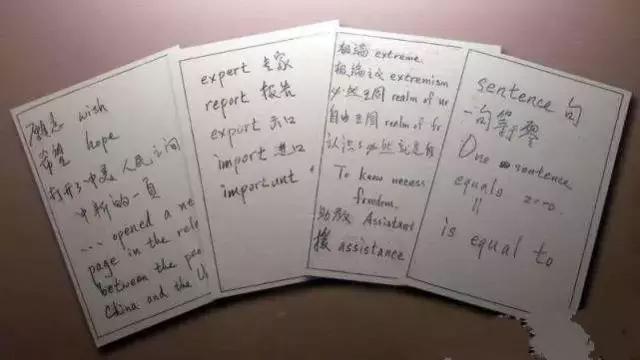 愿意 wish
希望 hope
打开了中美人民之间
中新的一頁
... opened a ne
page in the rela
between the peo
China and the U
expert 专家
report 报告
export 出口
import 進口
important
极端 extreme.
极端主义 extremism
必然王国 realm of ne
自由王国 realm of fr
认识了必然就是自
To know necess
freedom.
助教 Assistant
援 assistance
sentence 句
一句等于零
One sentence
equals zero.
=
is equal to